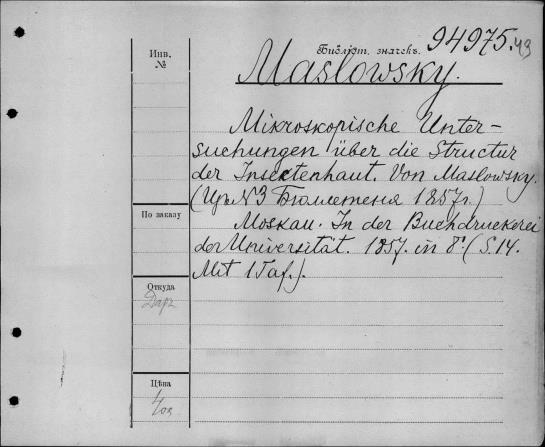 Инв. №
Библіот. значекъ. 94975.49
Maslowsky.
Mikroskopische Unter-
suchungen über die Structur
der Insektenhaut. Von Maslowsky.
(Изъ № 3 Бюллетеня 1857г.)
По заказу
Moskau. In der Buchdruckerei
der Universität. 1857. in 8° (S. 14.
Mit 1 Taf.).
Откуда
Дар
Цѣна